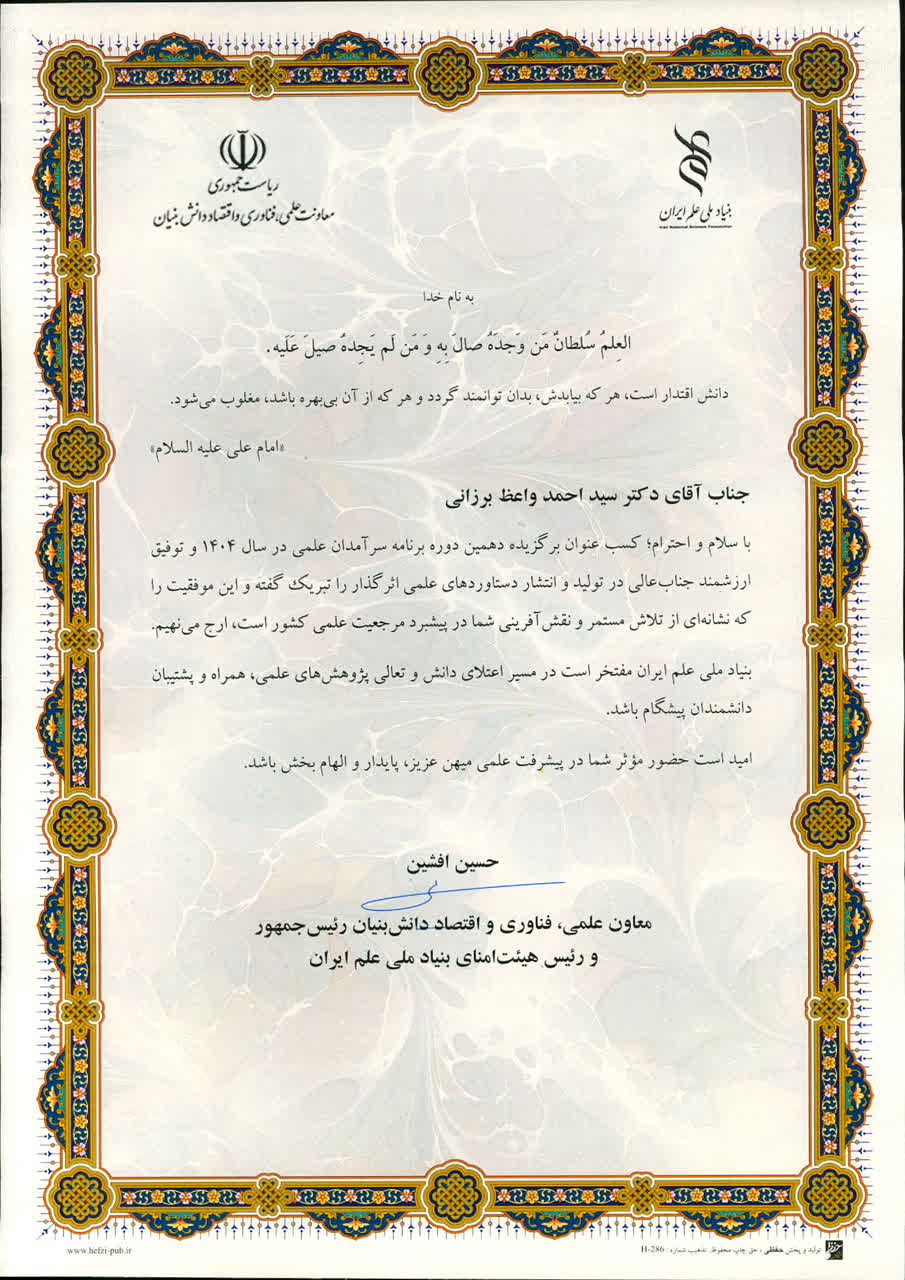 ریاست جمهوری
معاونت علمی، فناوری و اقتصاد دانش بنیان
بنیاد ملی علم ایران
Iran National Science Foundation
به نام خدا
العِلمُ سُلطانٌ مَن وَجَدَهُ صالَ بِهِ وَ مَن لَم یَجِدهُ صیلَ عَلَیه.
دانش اقتدار است، هر که بیابدش، بدان توانمند گردد و هر که از آن بی‌بهره باشد، مغلوب می‌شود.
«امام علی علیه السلام»
جناب آقای دکتر سید احمد واعظ برزانی
با سلام و احترام؛ کسب عنوان برگزیده دهمین دوره برنامه سرآمدان علمی در سال ۱۴۰۴ و توفیق
ارزشمند جناب‌عالی در تولید و انتشار دستاوردهای علمی اثرگذار را تبریک گفته و این موفقیت را
که نشانه‌ای از تلاش مستمر و نقش‌آفرینی شما در پیشبرد مرجعیت علمی کشور است، ارج می‌نهیم.
بنیاد ملی علم ایران مفتخر است در مسیر اعتلای دانش و تعالی پژوهش‌های علمی، همراه و پشتیبان
دانشمندان پیشگام باشد.
امید است حضور مؤثر شما در پیشرفت علمی میهن عزیز، پایدار و الهام بخش باشد.
حسین افشین
معاون علمی، فناوری و اقتصاد دانش‌بنیان رئیس‌جمهور
و رئیس هیئت‌امنای بنیاد ملی علم ایران
تولید و پخش حفظی، حق چاپ محفوظ. تذهیب شماره: H-286
www.hefzi-pub.ir